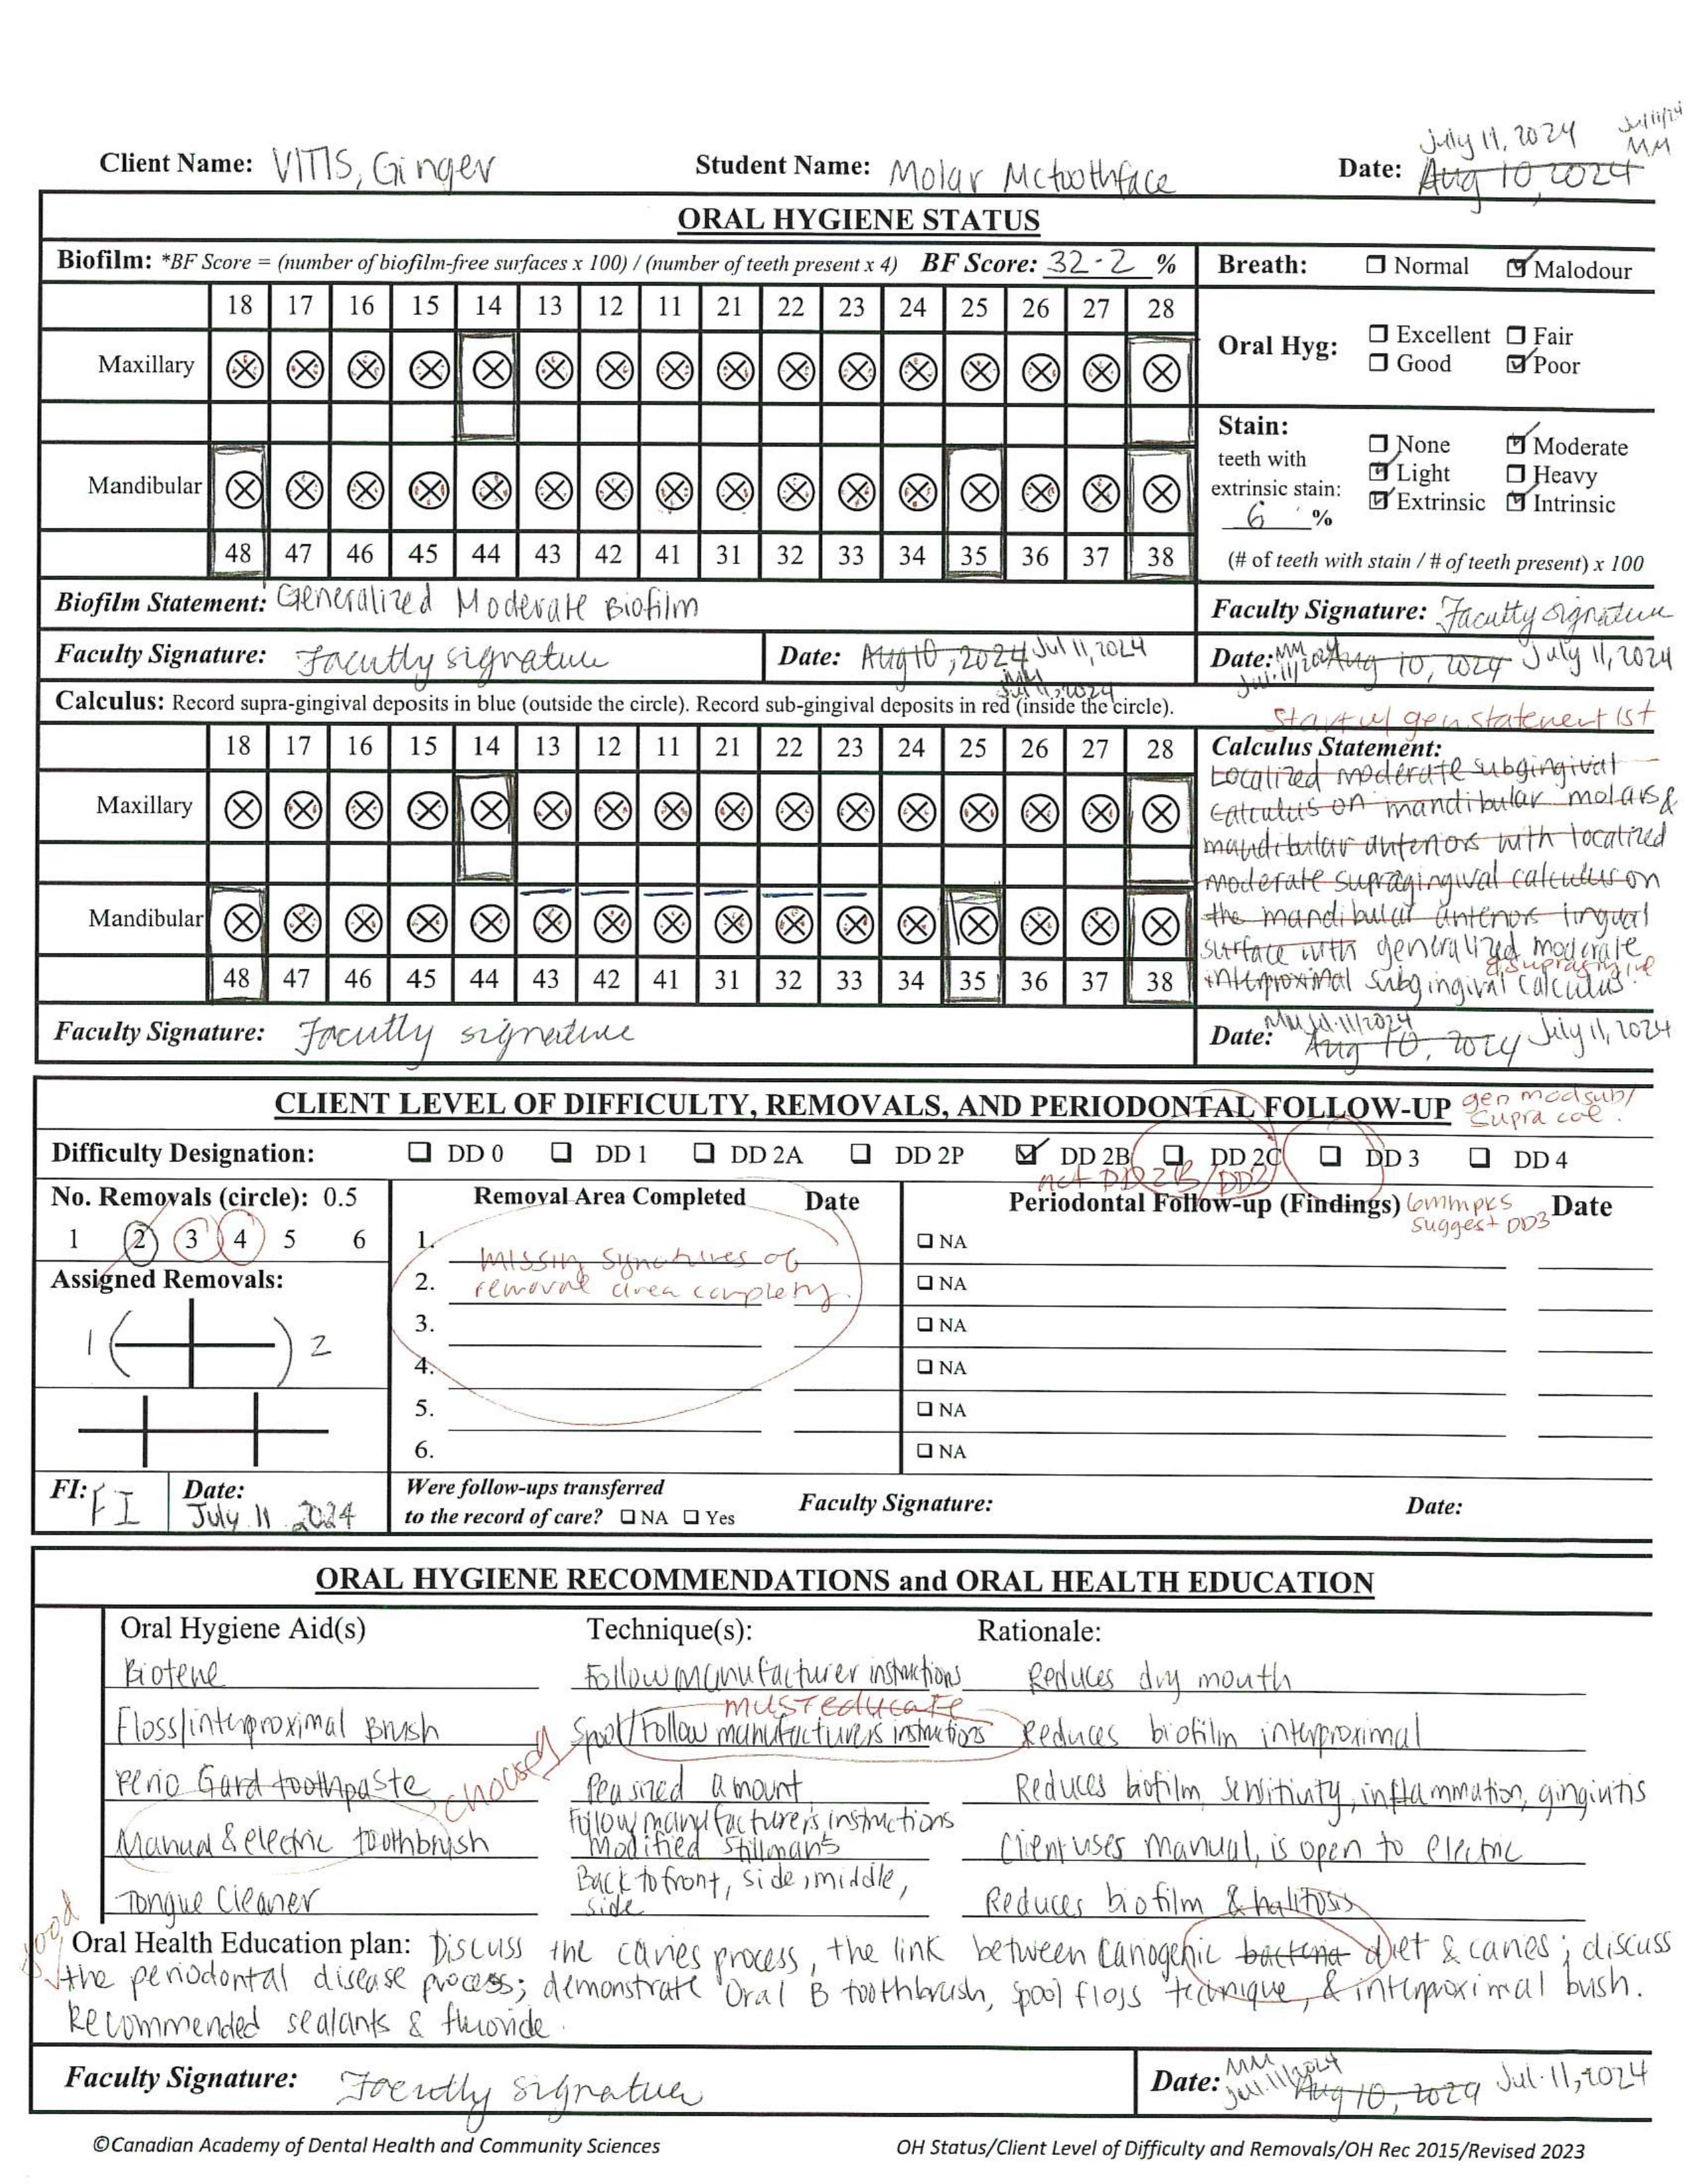 July 11, 2024 Jul 11/24
MM
Client Name: VITIS, Ginger Student Name: Molar Mctoothface Date: Aug 10, 2024
ORAL HYGIENE STATUS
Biofilm: *BF Score = (number of biofilm-free surfaces x 100) / (number of teeth present x 4) BF Score: 32.2 % Breath: Normal Malodour
18 17 16 15 14 13 12 11 21 22 23 24 25 26 27 28
Maxillary
Oral Hyg: Excellent Fair
Good Poor
Mandibular
Stain: None Moderate
teeth with Light Heavy
extrinsic stain: Extrinsic Intrinsic
6 %
48 47 46 45 44 43 42 41 31 32 33 34 35 36 37 38 (# of teeth with stain / # of teeth present) x 100
Biofilm Statement: Generalized Moderate Biofilm Faculty Signature: Faculty signature
Faculty Signature: Facutly signature Date: Aug 10, 2024 Jul 11, 2024 Date: MM Jul. 11/2024 Aug 10, 2024 July 11, 2024
MM
Jul 11, 2024
Calculus: Record supra-gingival deposits in blue (outside the circle). Record sub-gingival deposits in red (inside the circle).
Start w/ gen statement 1st
18 17 16 15 14 13 12 11 21 22 23 24 25 26 27 28
Maxillary
Mandibular
48 47 46 45 44 43 42 41 31 32 33 34 35 36 37 38
Calculus Statement:
Localized moderate subgingival
calculus on mandibular molars &
mandibular anteriors with localized
moderate supragingival calculus on
the mandibular anteriors lingual
surface with generalized moderate
interproximal subgingival calculus.
Faculty Signature: Facutly signature Date: MM Jul. 11/2024 Aug 10, 2024 July 11, 2024
CLIENT LEVEL OF DIFFICULTY, REMOVALS, AND PERIODONTAL FOLLOW-UP
gen mod sub/
supra cal.
Difficulty Designation: DD 0 DD 1 DD 2A DD 2P DD 2B DD 2C DD 3 DD 4
not DD2B/DD2
No. Removals (circle): 0.5 Removal Area Completed Date Periodontal Follow-up (Findings) Date
6mm pks
suggest DD3
1 2 3 4 5 6
Assigned Removals:
1 2
1. NA
missing signatures of
2. NA
removal area completing
3. NA
4. NA
5. NA
6. NA
FI: FI Date: July 11 2024
Were follow-ups transferred
to the record of care? NA Yes
Faculty Signature: Date:
ORAL HYGIENE RECOMMENDATIONS and ORAL HEALTH EDUCATION
Oral Hygiene Aid(s) Technique(s): Rationale:
Biotene Follow manufacturer instructions Reduces dry mouth
must educate
Floss/interproximal Brush Spool/Follow manufacturer's instructions Reduces biofilm interproximal
Perio Gard toothpaste Peasized amount Reduces biofilm, sensitivity, inflammation, gingivitis
Manual & electric toothbrush Follow manufacturer's instructions Modified Stillman's Client uses manual, is open to electric
Tongue Cleaner Back to front, side, middle, side Reduces biofilm & halitosis
good
Oral Health Education plan: Discuss the caries process, the link between cariogenic bacteria diet & caries; discuss
the periodontal disease process; demonstrate Oral B toothbrush, spool floss technique, & interproximal bush.
Recommended sealants & fluoride.
Faculty Signature: Facutly signature Date: MM Jul. 11/2024 Aug 10, 2024 Jul. 11, 2024
©Canadian Academy of Dental Health and Community Sciences OH Status/Client Level of Difficulty and Removals/OH Rec 2015/Revised 2023